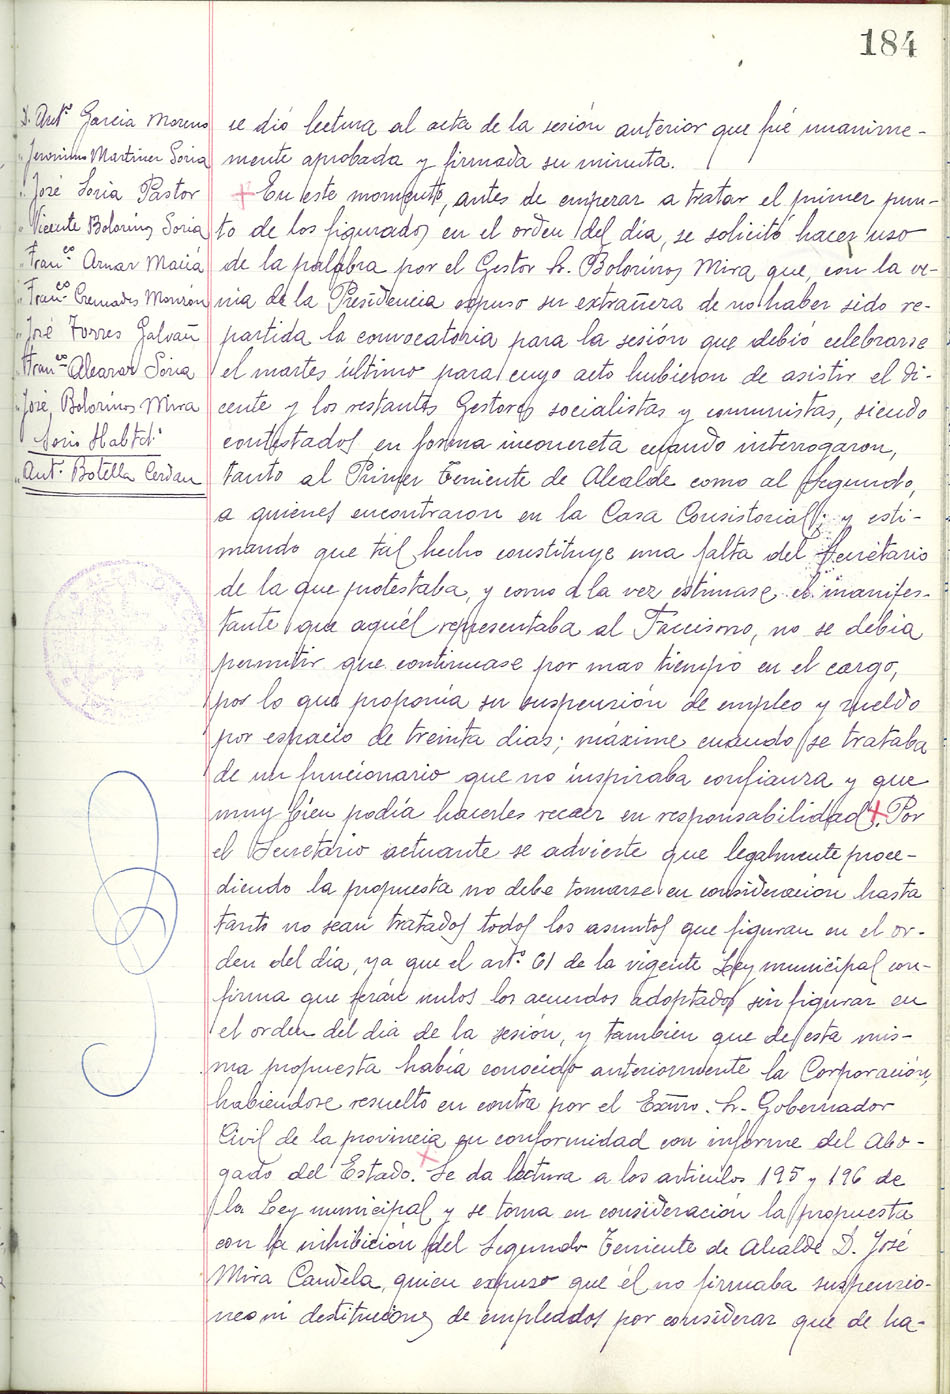 184
D. Antº Garcia Moreno
" Jeronimo Martinez Soria
" José Soria Pastor
" Vicente Bolorinos Soria
" Franco Aznar Macia
" Franco Cremades Monzón
" José Torres Galvañ
" Franco Alcaraz Soria
" José Bolorinos Mira
Sorio Habtdº
" Antº Botella Cerdan
se dió lectura al acta de la sesión anterior que fué unanime-
mente aprobada y firmada su minuta.
En este momento, antes de empezar a tratar el primer pun-
to de los figurados en el orden del día, se solicitó hacer uso
de la palabra por el Gestor Sr. Bolorinos Mira que, con la ve-
nia de la Presidencia expuso su extrañeza de no haber sido re-
partida la convocatoria para la sesión que debió celebrarse
el martes último para cuyo acto hubieron de asistir el di-
cente y los restantes Gestores socialistas y comunistas, siendo
contestados en forma inconcreta cuando interrogaron,
tanto al Primer Teniente de Alcalde como al Segundo,
a quienes encontraron en la Casa Consistorial; y esti-
mando que tal hecho constituye una falta del Secretario
de la que protestaba, y como a la vez estimase el manifes-
tante que aquél representaba al Fascismo, no se debia
permitir que continuase por mas tiempo en el cargo,
por lo que proponía su suspensión de empleo y sueldo
por espacio de treinta dias; máxime cuando se trataba
de un funcionario que no inspiraba confianza y que
muy bien podía hacerles recaer en responsabilidad. Por
el Secretario actuante se advierte que legalmente proce-
diendo la propuesta no debe tomarse en consideración hasta
tanto no sean tratados todos los asuntos que figuran en el or-
den del día, ya que el artº 61 de la vigente Ley municipal con-
firma que serán nulos los acuerdos adoptados sin figurar en
el orden del dia de la sesión, y tambien que de esta mis-
ma propuesta había conocido anteriormente la Corporación,
habiendose resuelto en contra por el Exmo. Sr. Gobernador
Civil de la provincia en conformidad con informe del Abo-
gado del Estado. Se da lectura a los articulos 195 y 196 de
la Ley municipal y se toma en consideración la propuesta
con la inhibición del Segundo Teniente de Alcalde D. José
Mira Candela, quien expuso que él no firmaba suspensio-
nes ni destituciones de empleados por considerar que de ha-